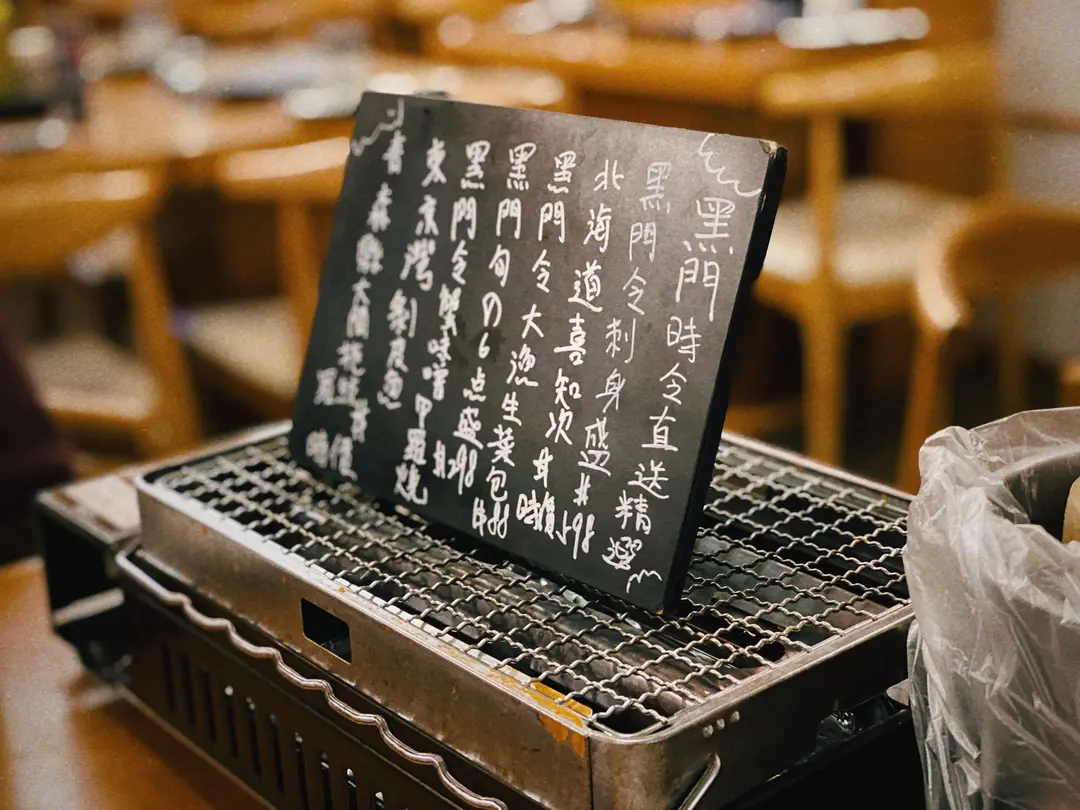 黑門時令直送精選
黑門令刺身盛 #598
北海道喜知次 #時價
黑門令大漁生菜包 #88
黑門旬の6点盛 #298
黑門令蟹味噌甲羅燒
東京灣剝皮魚
青森縣大間
時價